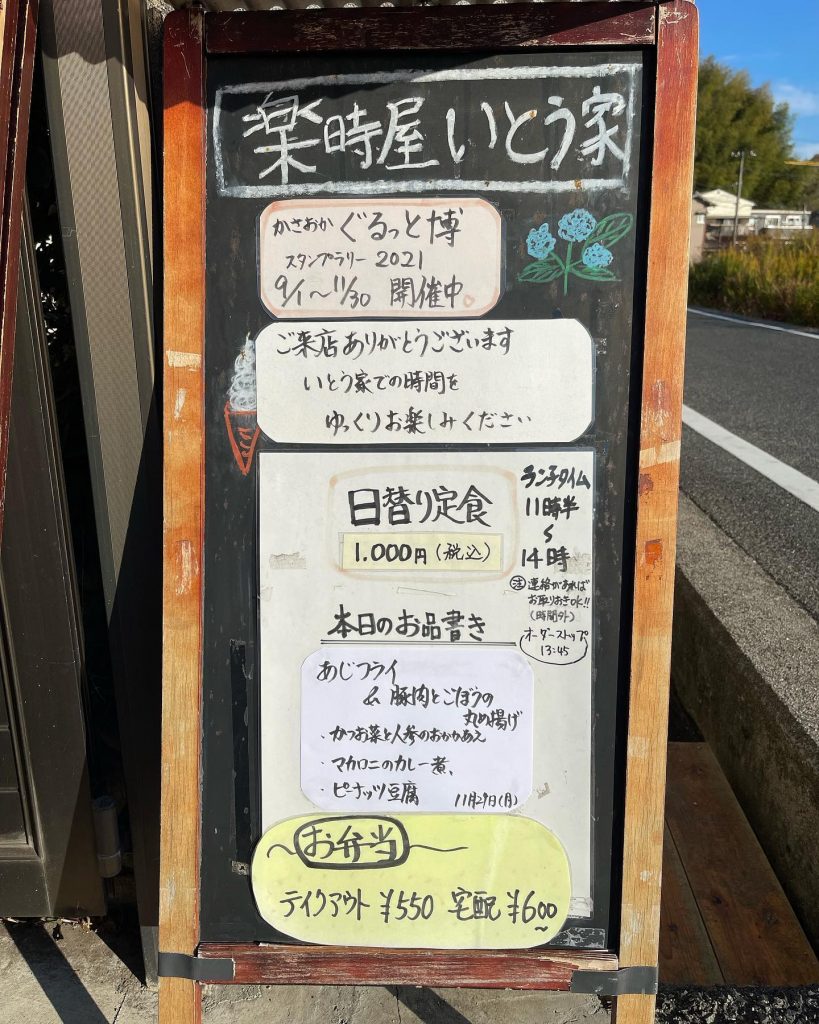 楽時屋 いとう家
かさおか ぐるっと博
スタンプラリー 2021
9/1〜11/30 開催中。
ご来店ありがとうございます
いとう家での時間を
ゆっくりお楽しみください
日替り定食
1.000円(税込)
ランチタイム
11時半
〜
14時
注 連絡があれば
お取りおきOK!!
(時間外)
オーダーストップ
13:45
本日のお品書き
あじフライ
& 豚肉とごぼうの
丸め揚げ
・かつお菜と人参のおかかあえ
・マカロニのカレー煮、
・ピーナッツ豆腐 11月29日(月)
〜お弁当〜
テイクアウト ¥550 宅配 ¥600〜